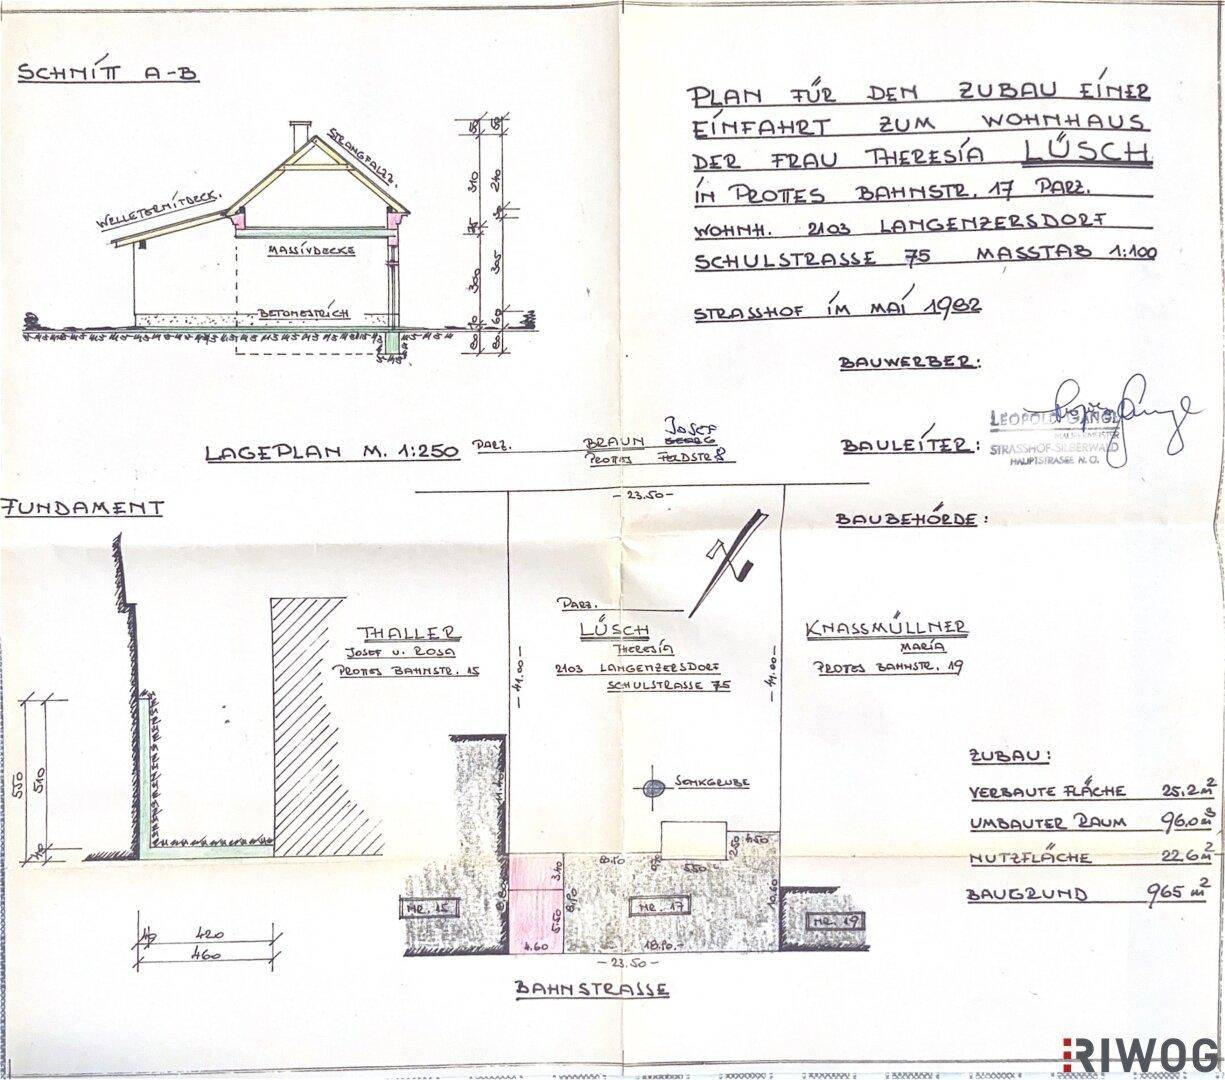 SCHNITT A-B
PLAN FÜR DEN ZUBAU EINER
EINFAHRT ZUM WOHNHAUS
DER FRAU THERESIA LÜSCH
IN PROTTES BAHNSTR. 17 PARZ.
WOHNH. 2103 LANGENZERSDORF
SCHULSTRASSE 75 MASSTAB 1:100
STRASSHOF IM MAI 1982
STRANGFALZZ.
WELLETERNITDECK.
MASSIVDECKE
BETONESTRICH
310
240
300
305
60
80
80
BAUWERBER:
BAULEITER:
LEOPOLD GANGL
STRASSHOF-SILBERWALD
HAUPTSTRASSE N.Ö.
BAUBEHÖRDE:
LAGEPLAN M. 1:250
PARZ. BRAUN GEORG
JOSEF
PROTTES FELDSTR 8
FUNDAMENT
- 23.50 -
PARZ.
LÜSCH
THERESIA
2103 LANGENZERSDORF
SCHULSTRASSE 75
THALLER
JOSEF U. ROSA
PROTTES BAHNSTR. 15
KNASSMÜLLNER
MARIA
PROTES BAHNSTR. 19
- 41.00 -
- 41.00 -
550
510
40
40
420
460
SENKGRUBE
11.40
3.40
5.50
8.90
4.60
5.50
2.50
4.50
10.60
18.90.-
NR. 15
NR. 17
NR. 19
- 23.50 -
BAHNSTRASSE
ZUBAU:
VERBAUTE FLÄCHE 25.2 m²
UMBAUTER RAUM 96.0 m³
NUTZFLÄCHE 22.6 m²
BAUGRUND 965 m²
RIWOG